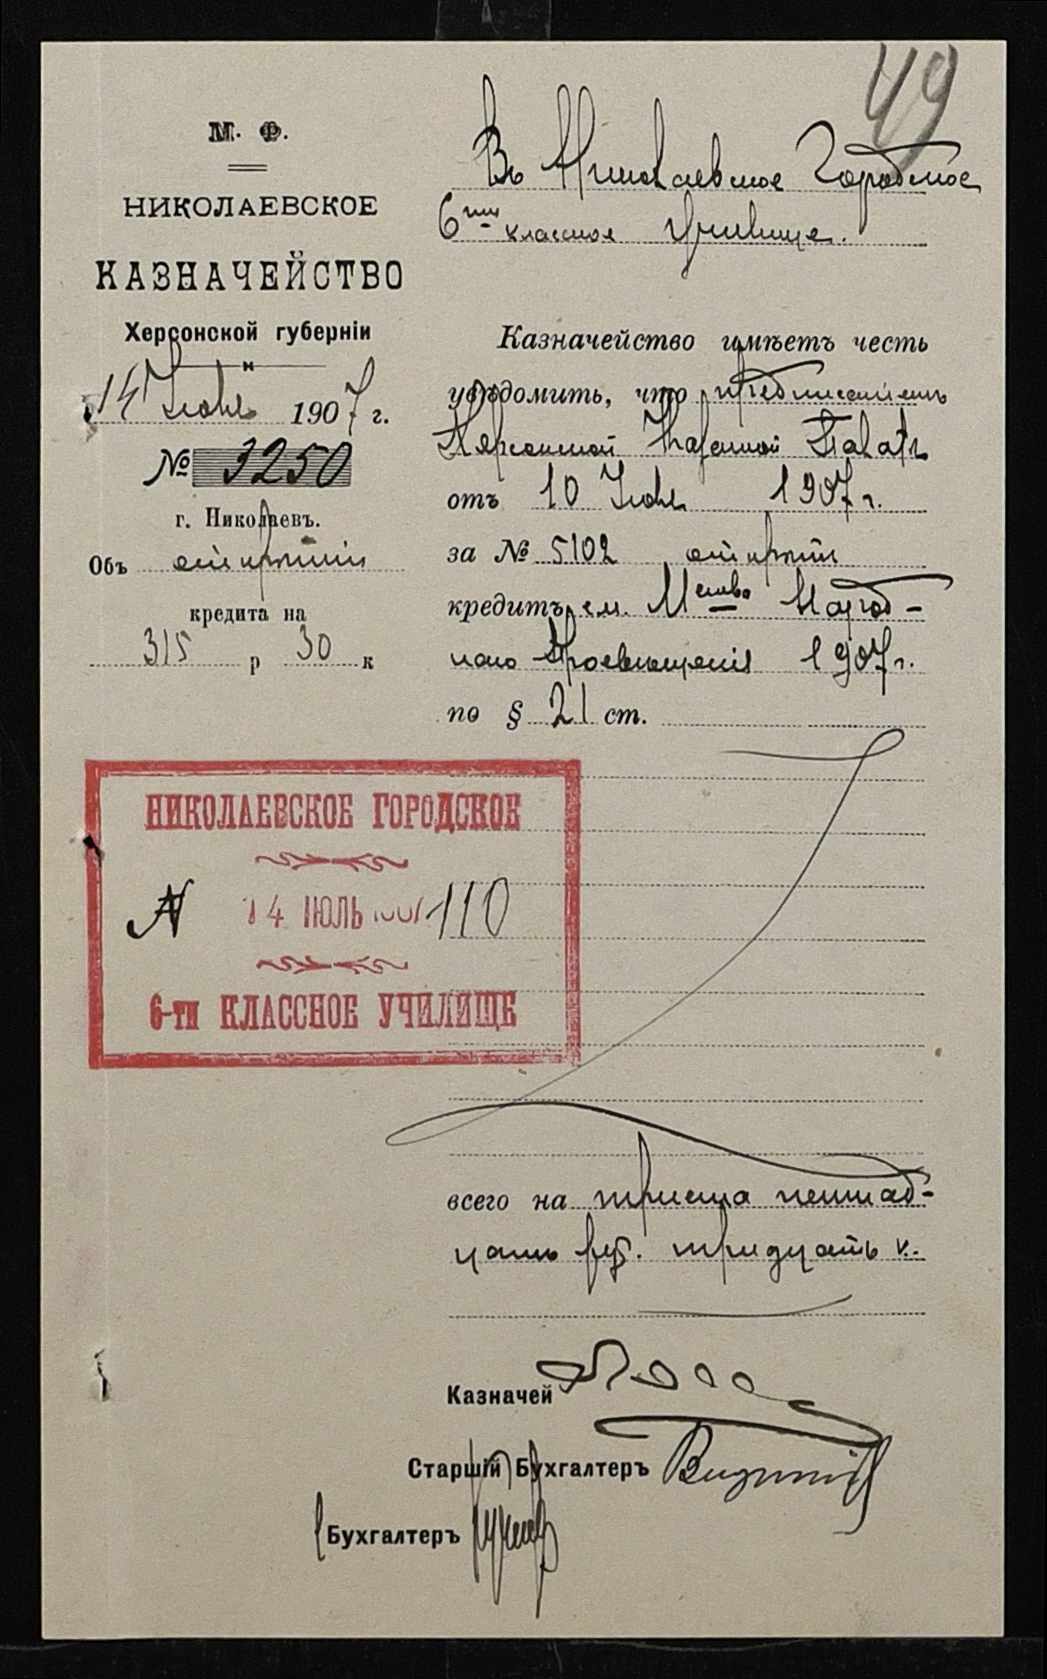 49
М. Ф.
НИКОЛАЕВСКОЕ
КАЗНАЧЕЙСТВО
Херсонской губерніи
14 Іюля 1907 г.
№ 3250
г. Николаевъ.
Объ открытіи
кредита на
315 р 30 к
Въ Николаевское Городское
6ти классное Училище.
Казначейство имѣетъ честь
увѣдомить, что предписаніемъ
Херсонской Казенной Палаты
отъ 10 Іюля 1907 г.
за № 5102 открытъ
кредитъ см. Мства Народ-
наго Просвѣщенія 1907 г.
по § 21 ст.
НИКОЛАЕВСКОЕ ГОРОДСКОЕ
№ 14 ІЮЛЬ 1907 110
6-ти КЛАССНОЕ УЧИЛИЩЕ
всего на триста пятнад-
цать руб. тридцать к.
Казначей
Старшій Бухгалтеръ
Бухгалтеръ